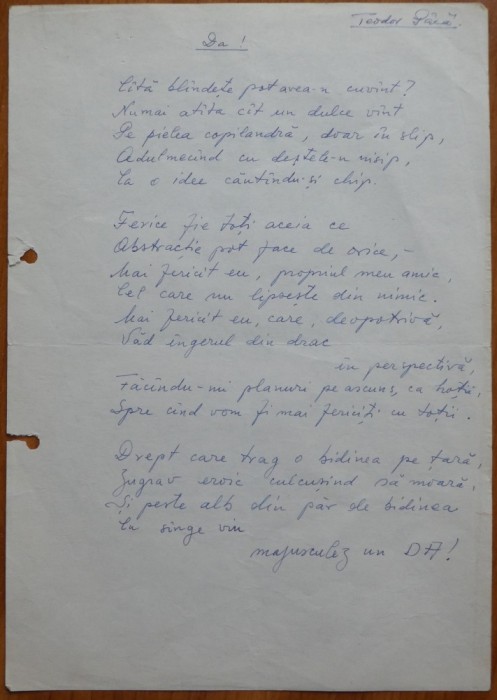 Teodor Pâcă.
Da!
Cîtă blîndețe pot avea-n cuvînt?
Numai atîta cît un dulce vînt
Pe pielea copilandră, doar în slip,
Adulmecînd cu deștele-n nisip,
Ca o idee căutîndu-și chip.
Ferice fie toți aceia ce
Abstracție pot face de orice, –
Mai fericit eu, propriul meu amic,
Cel care nu lipsește din nimic.
Mai fericit eu, care, deopotrivă,
Văd îngerul din drac
în perspectivă,
Făcîndu-mi planuri pe ascuns, ca hoții,
Spre cînd vom fi mai fericiți cu toții.
Drept care trag o bidinea pe țară,
Zugrav eroic culcușind să moară,
Și peste alb din păr de bidinea
Ca sînge viu
majusculez un DA!